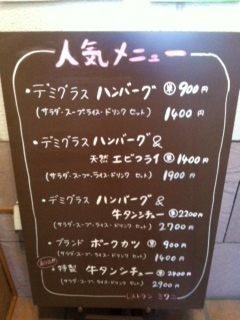 人気メニュー
・デミグラス ハンバーグ 単 900円
(サラダ・スープ・ライス・ドリンク セット) 1400円
・デミグラス ハンバーグ &
天然 エビフライ 単 1400円
(サラダ・スープ・ライス・ドリンク セット) 1900円
・デミグラス ハンバーグ &
牛タンシチュー 単 2200円
(サラダ・スープ・ライス・ドリンク セット) 2700円
・ブランド ポークカツ 単 900円
(サラダ・スープ・ライス・ドリンク セット) 1400円
・特製 牛タンシチュー 単 2400円
(サラダ・スープ・ライス・ドリンク セット) 2900円
レストラン